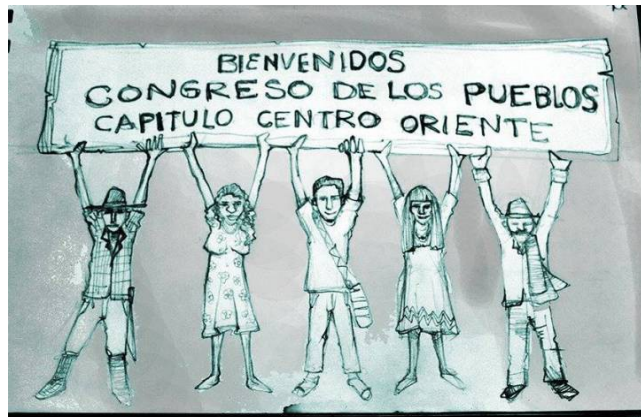 BIENVENIDOS
CONGRESO DE LOS PUEBLOS
CAPITULO CENTRO ORIENTE